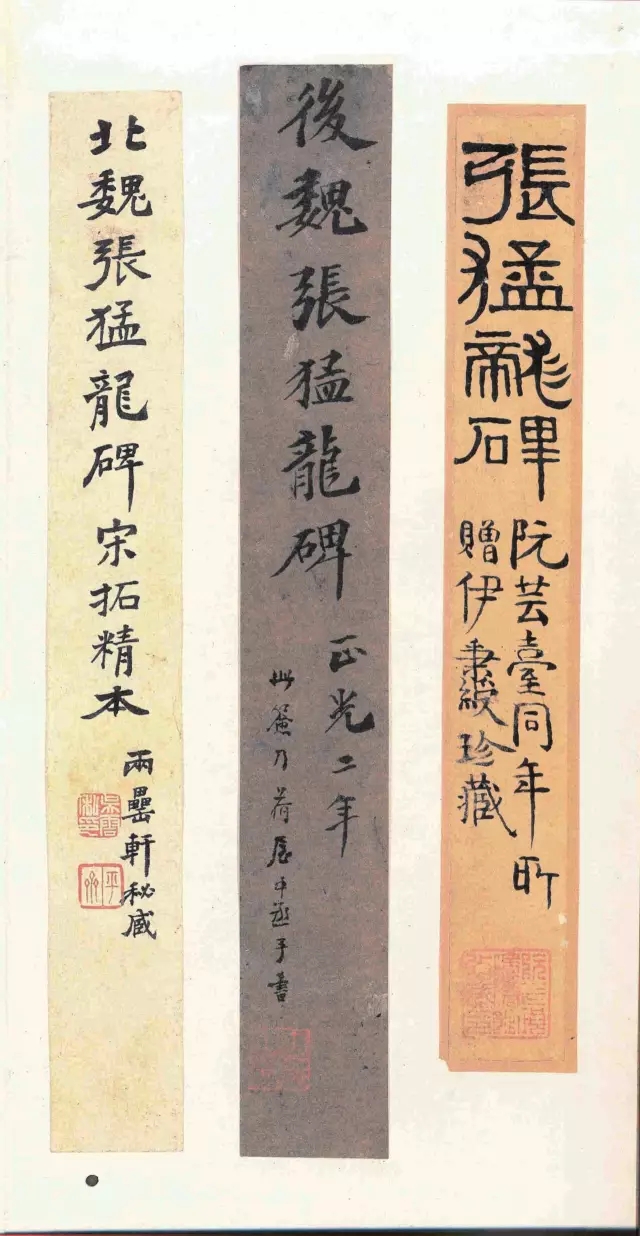 張猛龍碑
阮芸臺同年所
贈伊秉綬珍藏
後魏張猛龍碑
正光二年
此簽乃荷屋中丞手書
北魏張猛龍碑宋拓精本
兩罍軒秘藏
吳雲私印
平齋